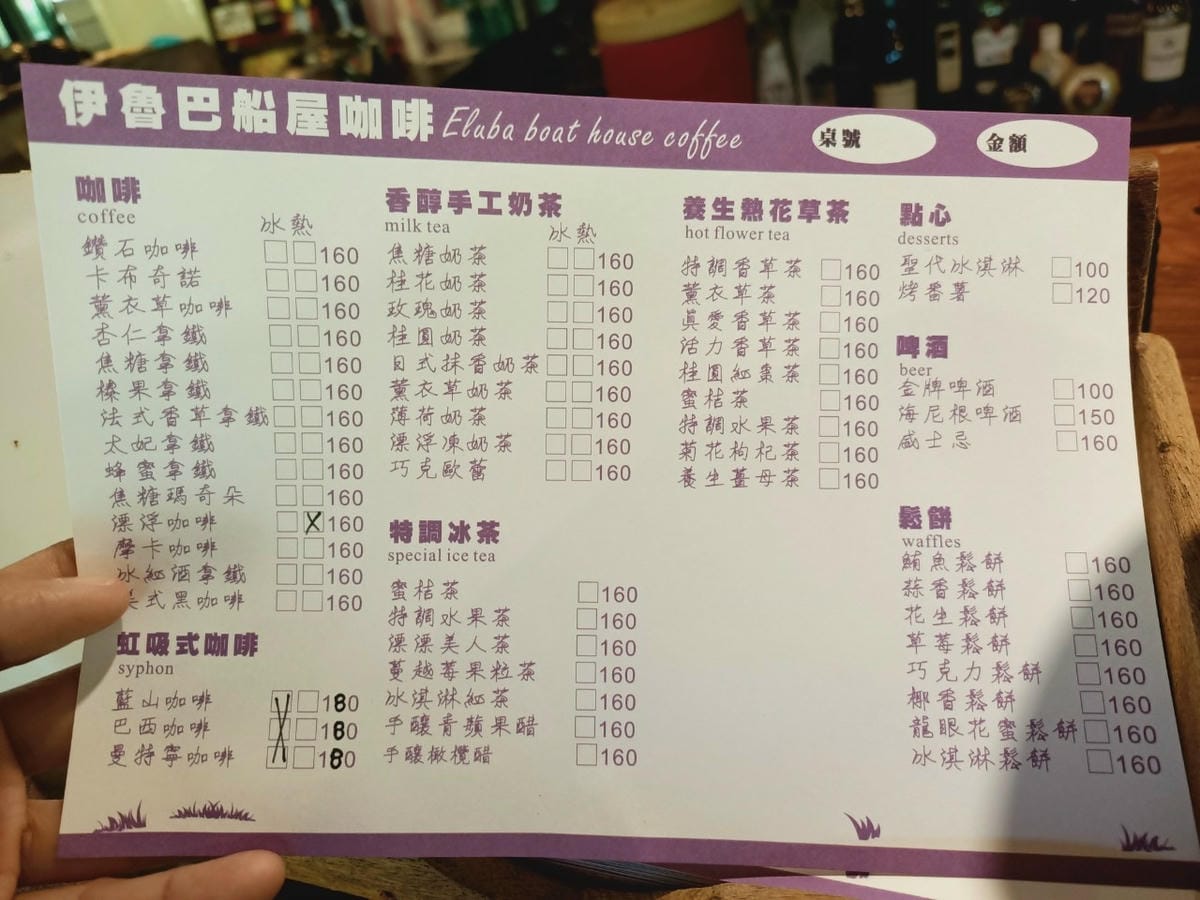 伊魯巴船屋咖啡 Eluba boat house coffee 桌號 金額
咖啡
coffee
冰 熱
鑽石咖啡 160
卡布奇諾 160
薰衣草咖啡 160
杏仁拿鐵 160
焦糖拿鐵 160
榛果拿鐵 160
法式香草拿鐵 160
太妃拿鐵 160
蜂蜜拿鐵 160
焦糖瑪奇朵 160
漂浮咖啡 X 160
摩卡咖啡 160
冰紅酒拿鐵 160
美式黑咖啡 160
虹吸式咖啡
syphon
藍山咖啡 180
巴西咖啡 180
曼特寧咖啡 180
香醇手工奶茶
milk tea
冰 熱
焦糖奶茶 160
桂花奶茶 160
玫瑰奶茶 160
桂圓奶茶 160
日式抹香奶茶 160
薰衣草奶茶 160
薄荷奶茶 160
漂浮凍奶茶 160
巧克歐蕾 160
特調冰茶
special ice tea
蜜桔茶 160
特調水果茶 160
漂漂美人茶 160
蔓越莓果粒茶 160
冰淇淋紅茶 160
手釀青蘋果醋 160
手釀橄欖醋 160
養生熱花草茶
hot flower tea
特調香草茶 160
薰衣草茶 160
真愛香草茶 160
活力香草茶 160
桂圓紅棗茶 160
蜜桔茶 160
特調水果茶 160
菊花枸杞茶 160
養生薑母茶 160
點心
desserts
聖代冰淇淋 100
烤番薯 120
啤酒
beer
金牌啤酒 100
海尼根啤酒 150
威士忌 160
鬆餅
waffles
鮪魚鬆餅 160
蒜香鬆餅 160
花生鬆餅 160
草莓鬆餅 160
巧克力鬆餅 160
椰香鬆餅 160
龍眼花蜜鬆餅 160
冰淇淋鬆餅 160